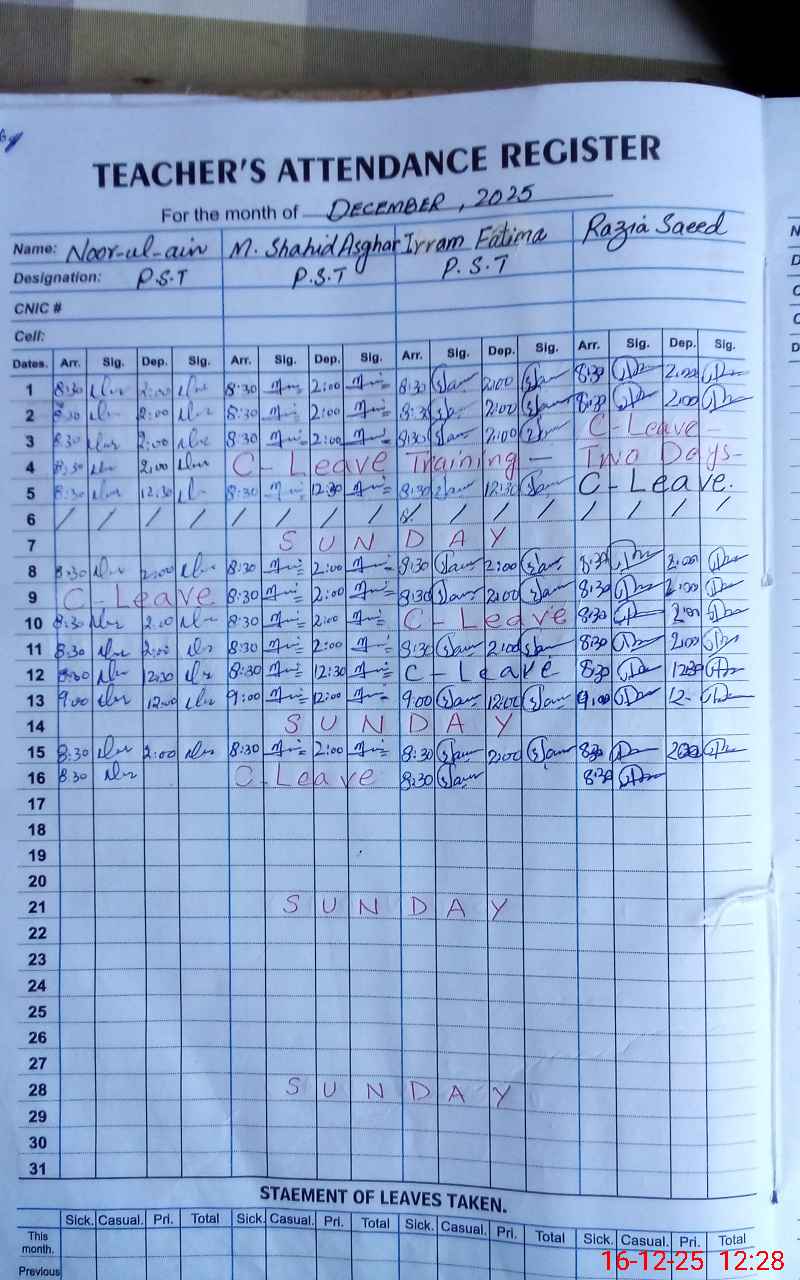 TEACHER'S ATTENDANCE REGISTER
For the month of DECEMBER, 2025
Name: Noor-ul-ain M. Shahid Asghar Irram Fatima Razia Saeed
Designation: P.S.T P.S.T P.S.T
CNIC #
Cell:
Dates. Arr. Sig. Dep. Sig. Arr. Sig. Dep. Sig. Arr. Sig. Dep. Sig. Arr. Sig. Dep. Sig.
1 8:30 2:00 8:30 2:00 8:30 2:00 8:30 2:00
2 8:30 2:00 8:30 2:00 8:30 2:00 8:30 2:00
3 8:30 2:00 8:30 2:00 8:30 2:00 C-Leave-
4 8:30 2:00 C-Leave Training - Two Days-
5 8:30 12:30 8:30 12:30 8:30 12:30 C-Leave.
6 / / / / / / / / / / / / / / /
7 SUNDAY
8 8:30 2:00 8:30 2:00 8:30 2:00 8:30 2:00
9 C-Leave 8:30 2:00 8:30 2:00 8:30 2:00
10 8:30 2:00 8:30 2:00 C-Leave 8:30 2:00
11 8:30 2:00 8:30 2:00 8:30 2:00 8:30 2:00
12 8:30 12:30 8:30 12:30 C-Leave 8:30 12:30
13 9:00 12:00 9:00 12:00 9:00 12:00 9:00 12-
14 SUNDAY
15 8:30 2:00 8:30 2:00 8:30 2:00 8:30 2:00
16 8:30 C-Leave 8:30 8:30
17
18
19
20
21 SUNDAY
22
23
24
25
26
27
28 SUNDAY
29
30
31
STAEMENT OF LEAVES TAKEN.
Sick. Casual. Pri. Total Sick. Casual. Pri. Total Sick. Casual. Pri. Total Sick. Casual. Pri. Total
This month.
Previous
16-12-25 12:28